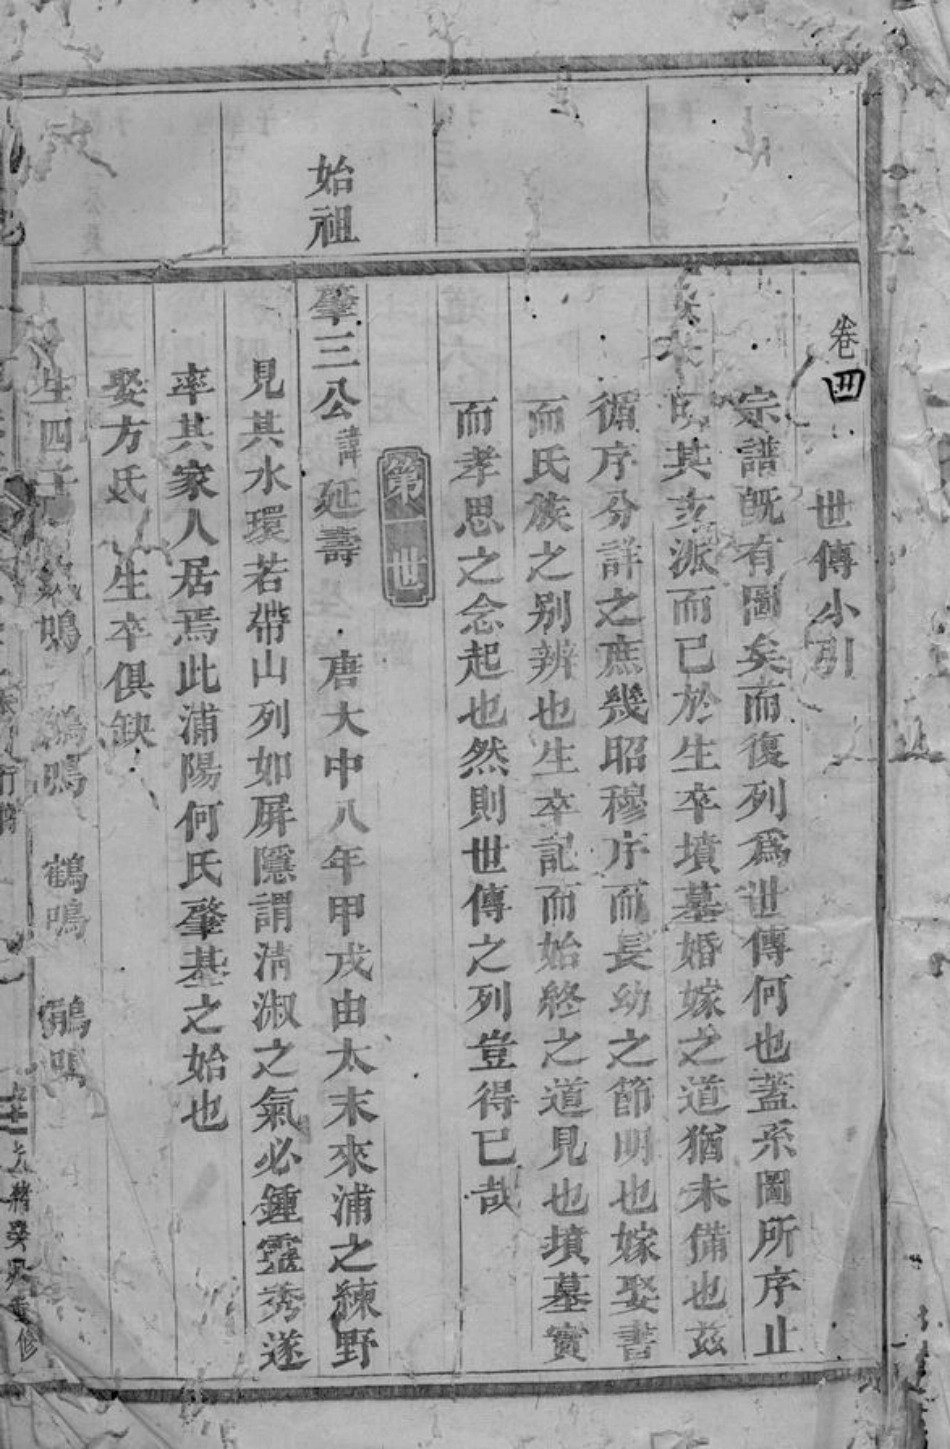 卷四
世傳小引
宗譜旣有圖矣而復列爲世傳何也蓋系圖所序止
其支派而已於生卒墳墓婚嫁之道猶未備也茲
循序分詳之庶幾昭穆序而長幼之節明也嫁娶書
而氏族之別辨也生卒記而始終之道見也墳墓實
而孝思之念起也然則世傳之列豈得已哉
第一世
始祖
肇三公諱延壽 唐大中八年甲戌由太末來浦之練野
見其水環若帶山列如屏隱謂淸淑之氣必鍾靈秀遂
率其家人居焉此浦陽何氏肇基之始也
娶方氏 生卒俱缺
生四子 鳴 鳴 鶴鳴 鳴
光緒癸 重修